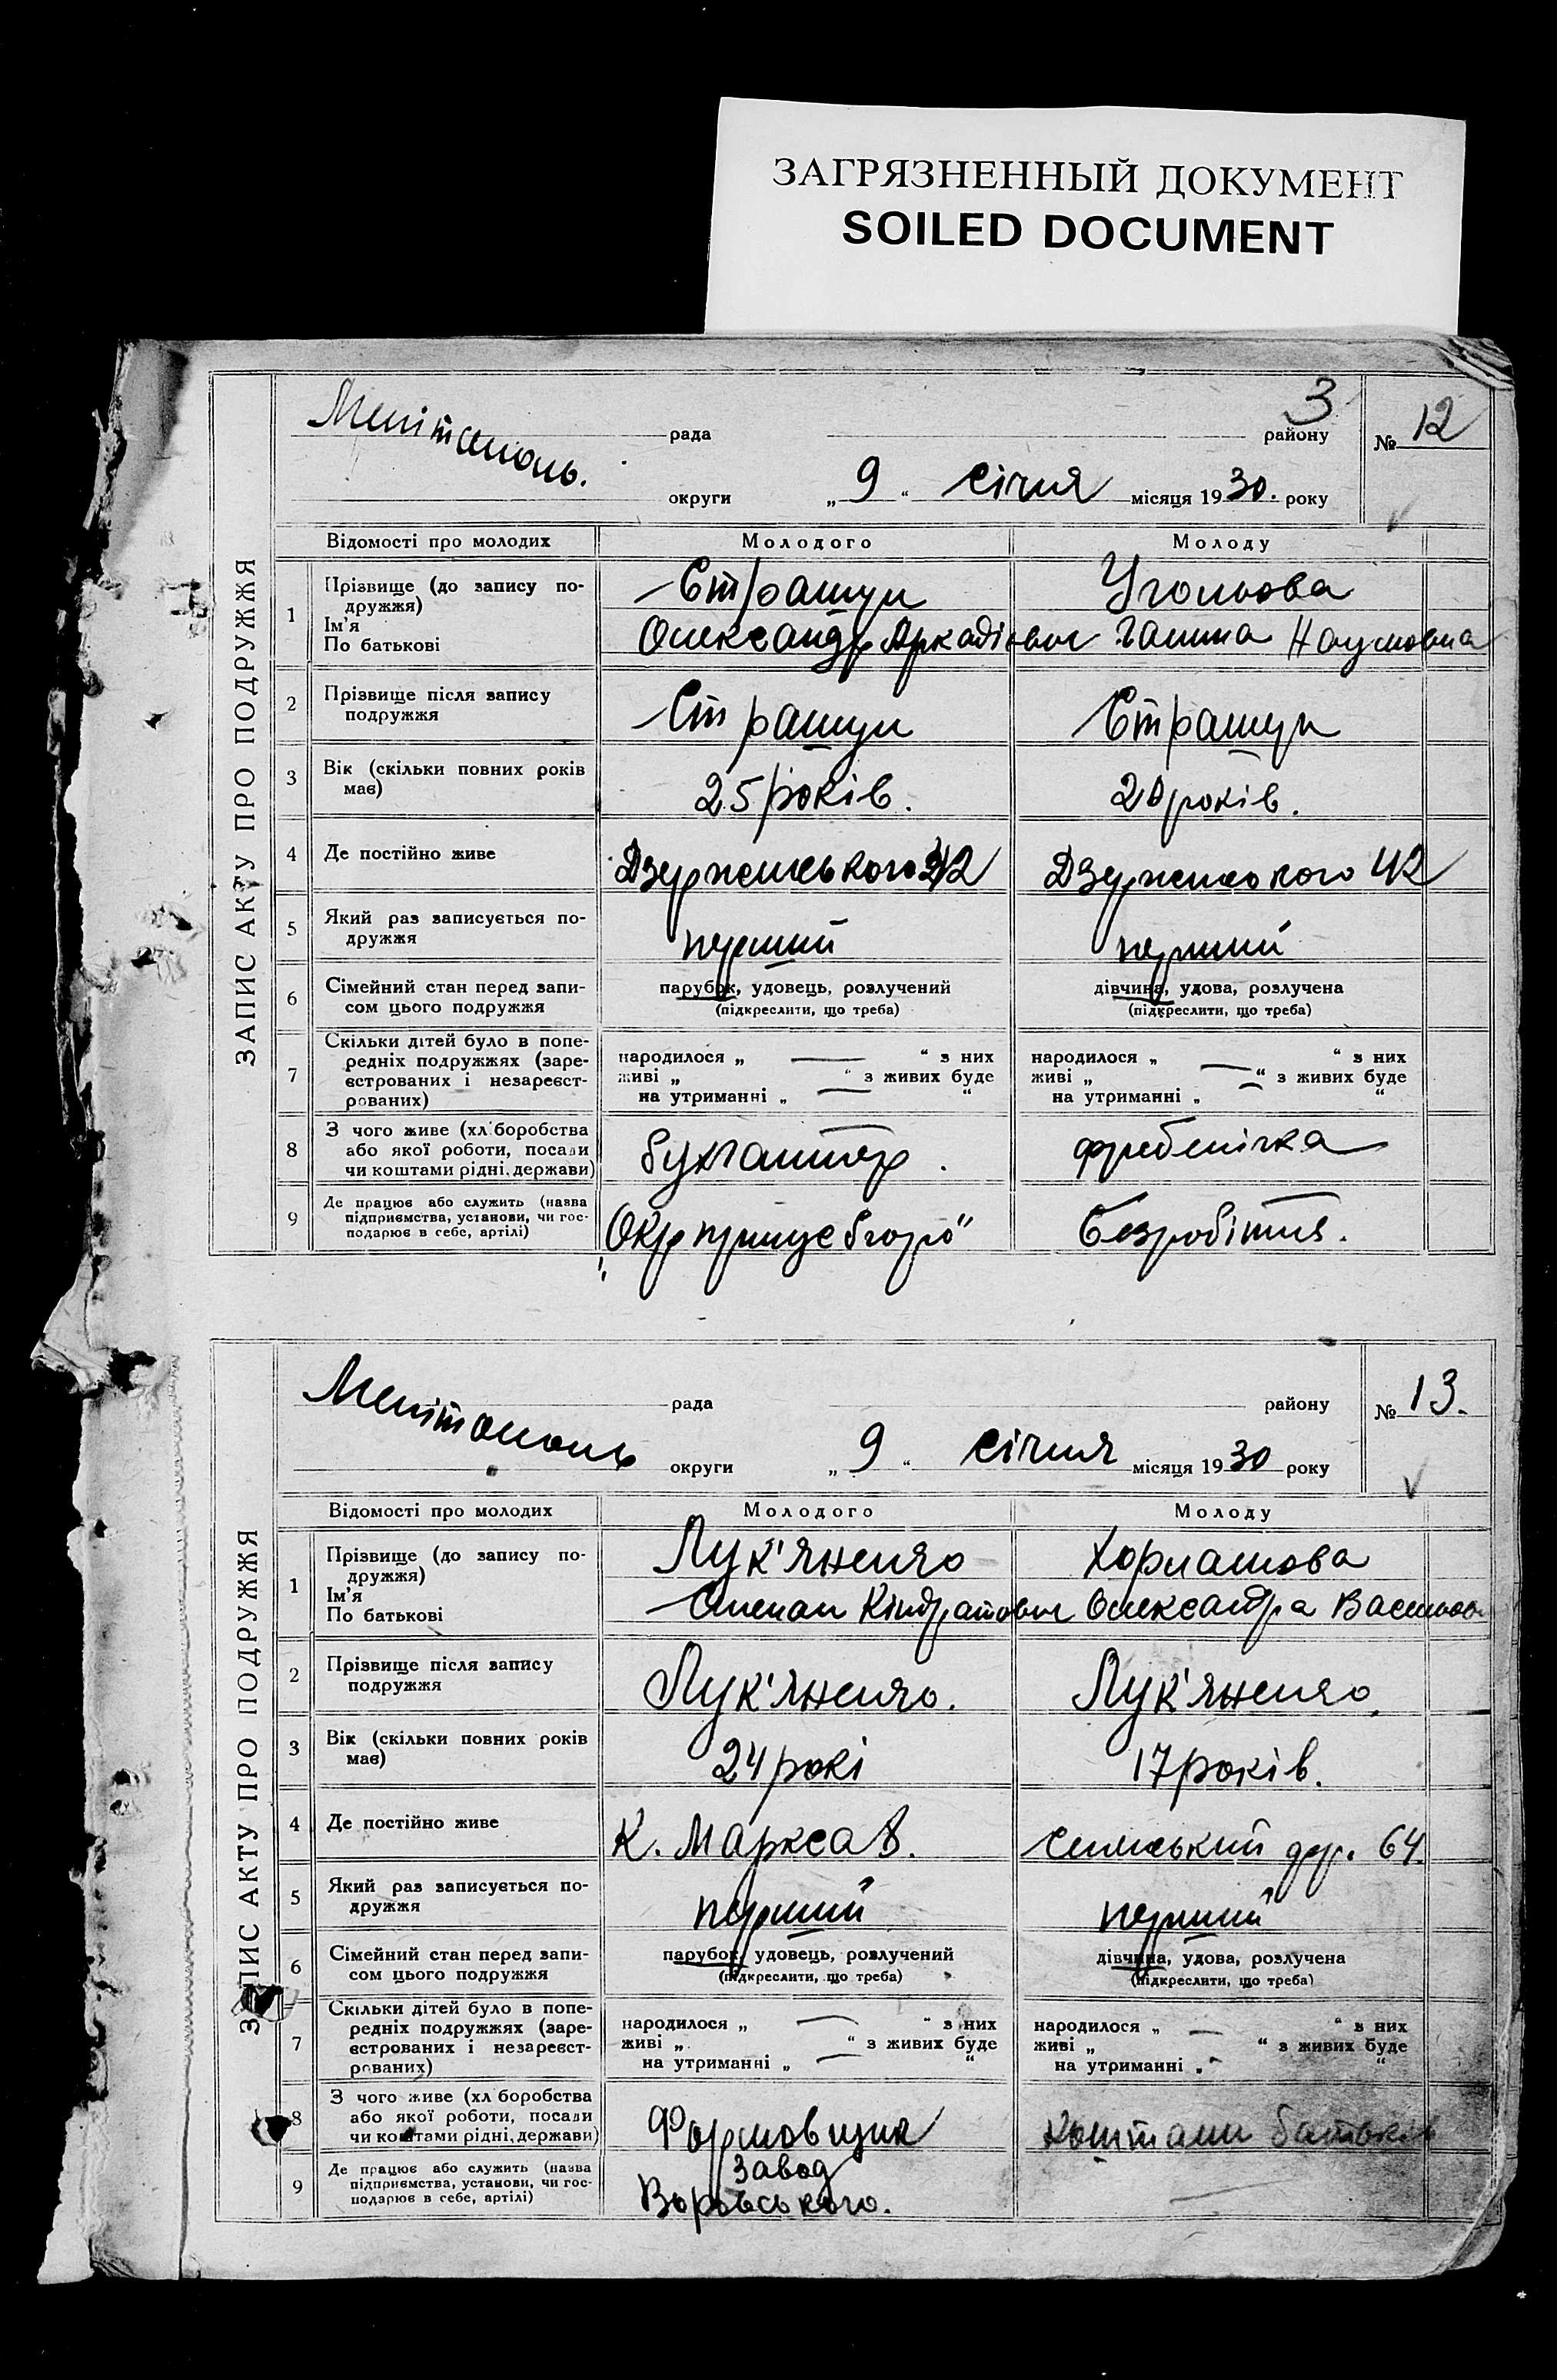 ЗАГРЯЗНЕННЫЙ ДОКУМЕНТ
SOILED DOCUMENT
ЗАПИС АКТУ ПРО ПОДРУЖЖЯ
3
Мелітополь.
рада
району
№ 12
округи
„ 9 “ січня місяця 1930. року
Відомості про молодих
Молодого
Молоду
1
Прізвище (до запису по-
дружжя)
Ім'я
По батькові
Страшун
Олександр Аркадієвич
Угольова
Галина Наумовна
2
Прізвище після запису
подружжя
Страшун
Страшун
3
Вік (скільки повних років
має)
25 років.
20 років.
4
Де постійно живе
Дзержинського 42
Дзержинського 42
5
Який раз записується по-
дружжя
перший
перший
6
Сімейний стан перед запи-
сом цього подружжя
парубок, удовець, розлучений
(підкреслити, що треба)
дівчина, удова, розлучена
(підкреслити, що треба)
7
Скільки дітей було в попе-
редніх подружжях (заре-
єстрованих і незареєст-
рованих)
народилося „ — “ з них
живі „ “ з живих буде
на утриманні „ — “
народилося „ — “ з них
живі „ “ з живих буде
на утриманні „ — “
8
З чого живе (хліборобства
або якої роботи, посади
чи коштами рідні, держави)
бухгалтер.
фребелічка
9
Де працює або служить (назва
підприємства, установи, чи гос-
подарює в себе, артілі)
бюро“
безробітня.
ЗАПИС АКТУ ПРО ПОДРУЖЖЯ
Мелітополь
рада
району
№ 13.
округи
„ 9 “ січня місяця 1930 року
Відомості про молодих
Молодого
Молоду
1
Прізвище (до запису по-
дружжя)
Ім'я
По батькові
Лук'яненко
Степан Кіндратович
Олександра
2
Прізвище після запису
подружжя
Лук'яненко.
Лук'яненко
3
Вік (скільки повних років
має)
24 рокі
17 років.
4
Де постійно живе
К. Маркса 8.
64
5
Який раз записується по-
дружжя
перший
перший
6
Сімейний стан перед запи-
сом цього подружжя
парубок, удовець, розлучений
(підкреслити, що треба)
дівчина, удова, розлучена
(підкреслити, що треба)
7
Скільки дітей було в попе-
редніх подружжях (заре-
єстрованих і незареєст-
рованих)
народилося „ — “ з них
живі „ “ з живих буде
на утриманні „ — “
народилося „ — “ з них
живі „ “ з живих буде
на утриманні „ - “
8
З чого живе (хліборобства
або якої роботи, посади
чи коштами рідні, держави)
Формовщик
Коштами батьків
9
Де працює або служить (назва
підприємства, установи, чи гос-
подарює в себе, артілі)
Завод
Воровського.
—